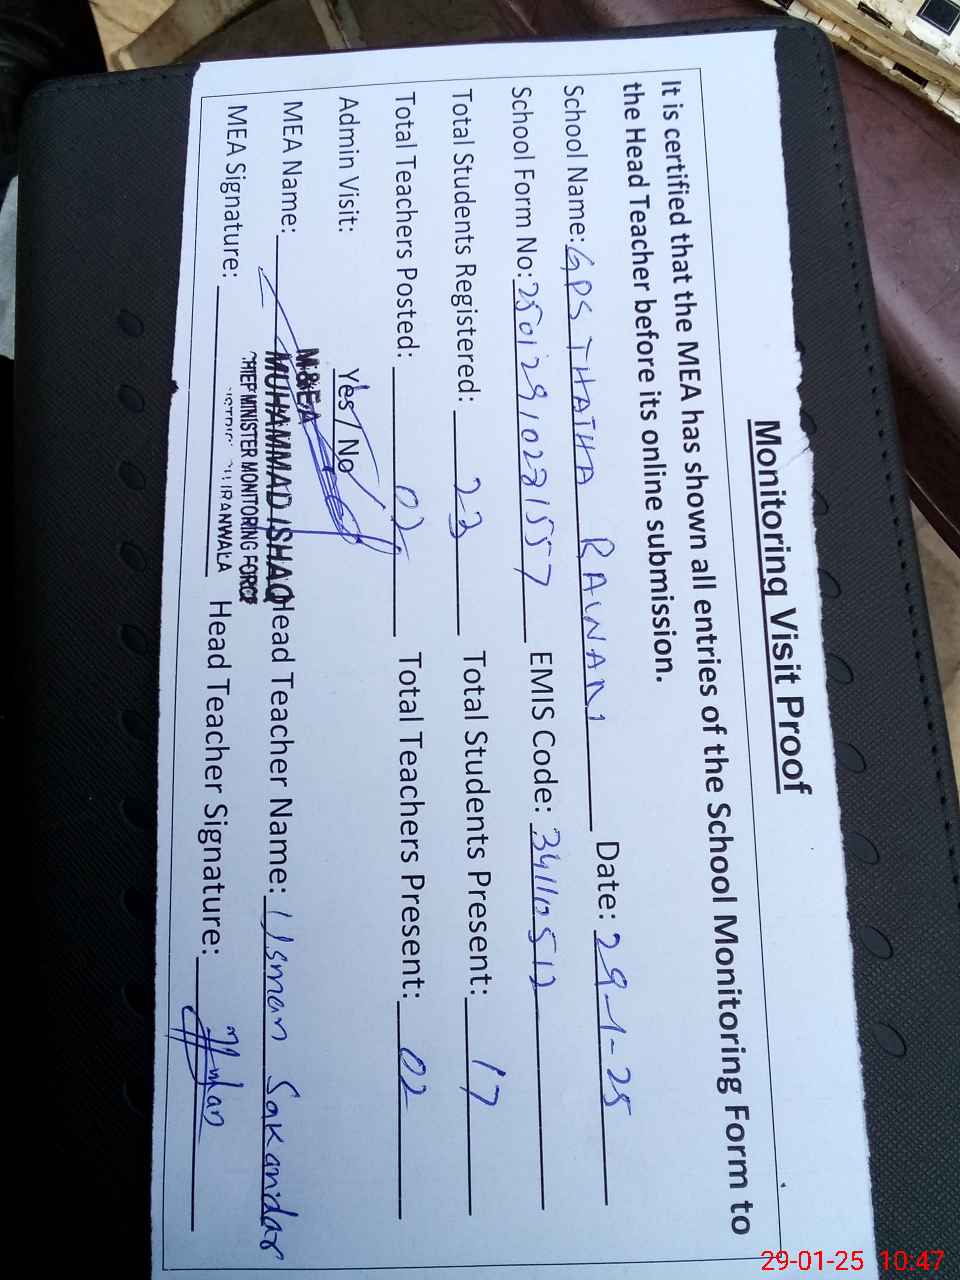 Monitoring Visit Proof
It is certified that the MEA has shown all entries of the School Monitoring Form to
the Head Teacher before its online submission.
School Name: GPS THATHA RAWNANI Date: 29-1-25
School Form No: 25012910231557 EMIS Code: 34110512
Total Students Registered: 23 Total Students Present: 17
Total Teachers Posted: 02 Total Teachers Present: 02
Admin Visit: Yes / No
M&EA
MEA Name: MUHAMMAD ISHAQ Head Teacher Name: Usman Sakandar
CHIEF MINISTER MONITORING FORCE
MEA Signature: Head Teacher Signature: Usman
29-01-25 10:47